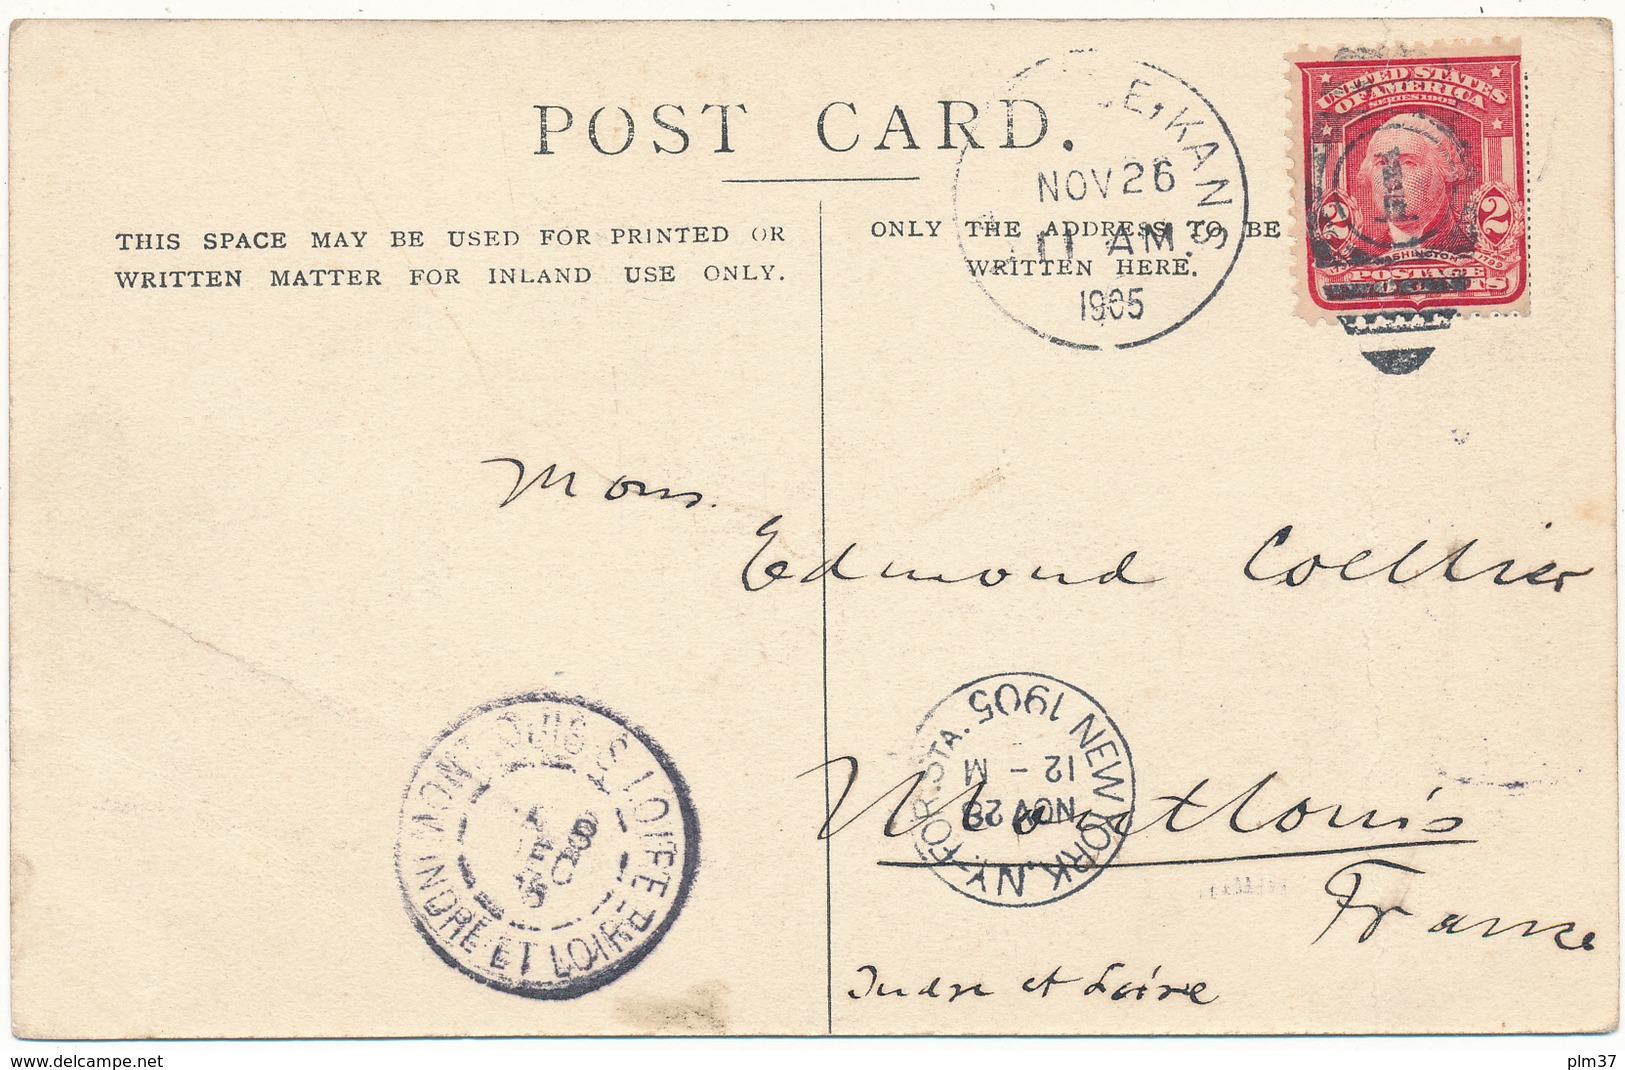 POST CARD.
THIS SPACE MAY BE USED FOR PRINTED OR
WRITTEN MATTER FOR INLAND USE ONLY.
ONLY THE ADDRESS TO BE
WRITTEN HERE.
E, KANS.
NOV 26
11 AM
1905
UNITED STATES
OF AMERICA
SERIES 1902
2 2
WASHINGTON
POSTAGE
1
Mons.
Edmond Coellier
Montlouis
France
Indre et Loire
NEW YORK, N.Y. FOR. STA.
1905
12 - M
NOV 28
MONTLOUIS S LOIRE
INDRE ET LOIRE
www.delcampe.net
plm37